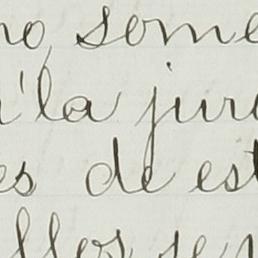 no some
la jur
es de est
llos se